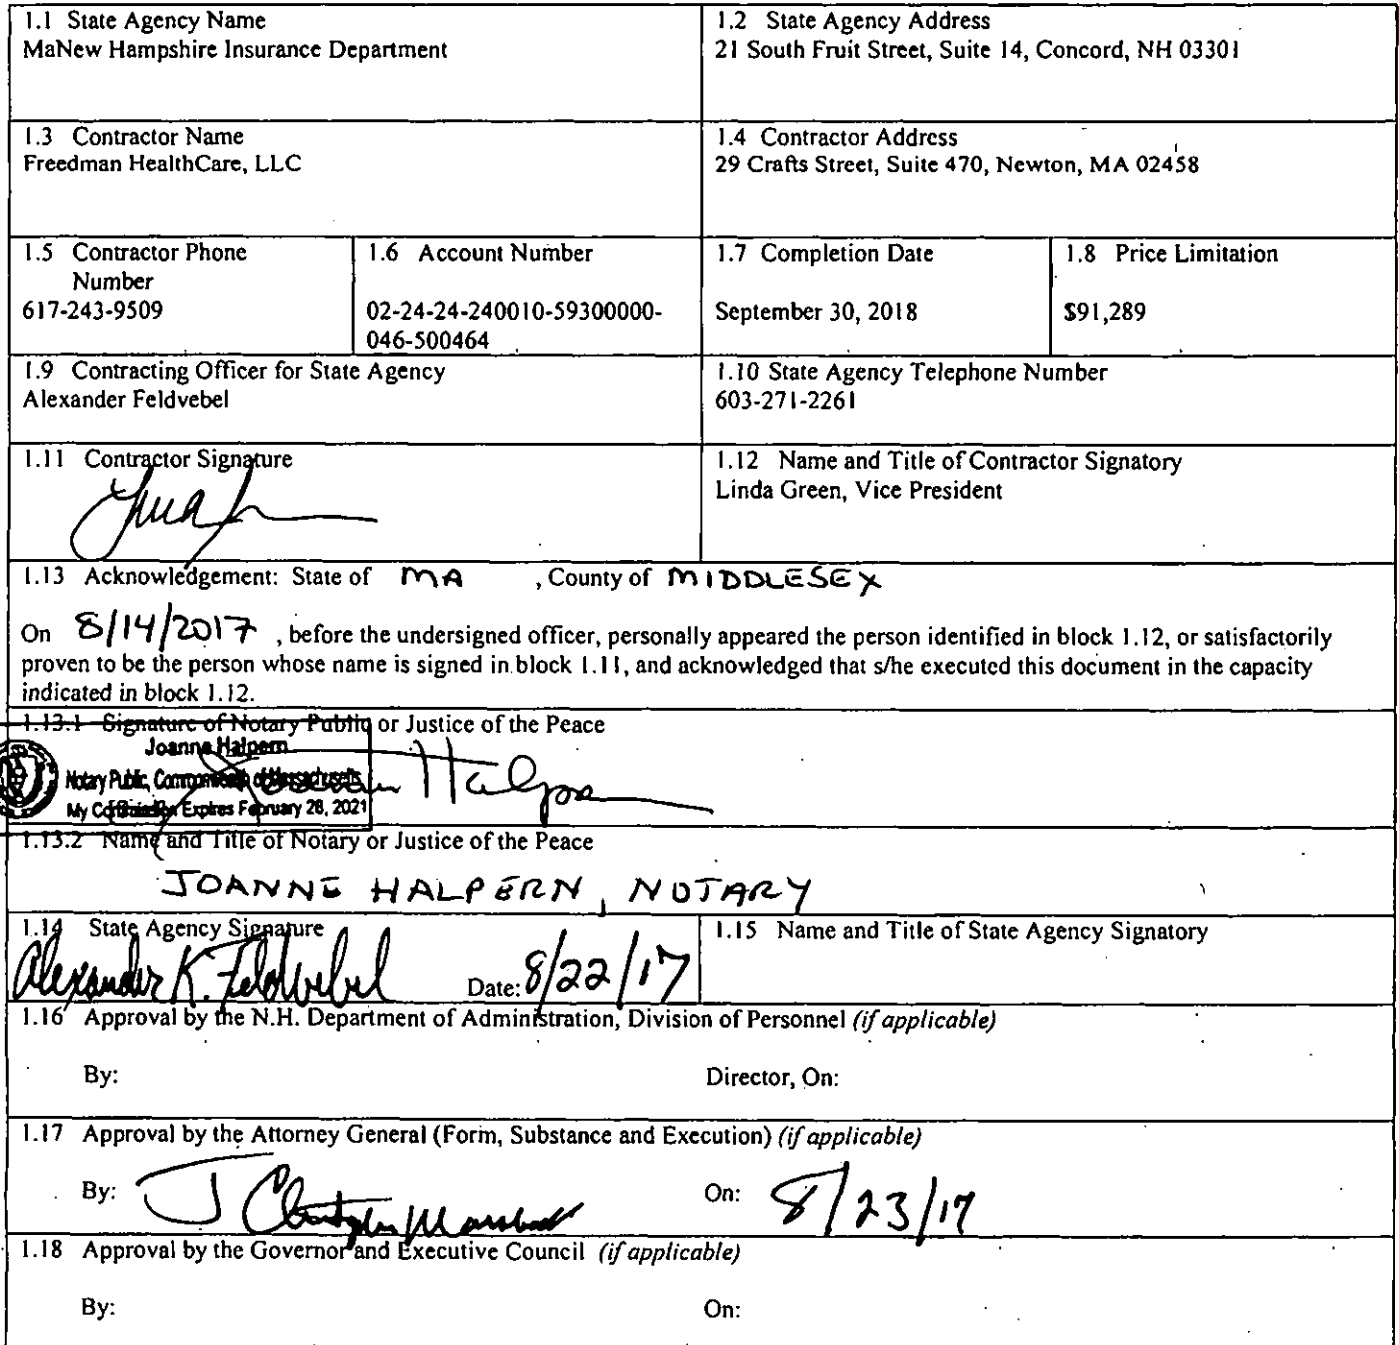 1.1 State Agency Name
MaNew Hampshire Insurance Department
1.2 State Agency Address
21 South Fruit Street, Suite 14, Concord, NH 03301
1.3 Contractor Name
Freedman HealthCare, LLC
1.4 Contractor Address
29 Crafts Street, Suite 470, Newton, MA 02458
1.5 Contractor Phone
Number
617-243-9509
1.6 Account Number
02-24-24-240010-59300000-
046-500464
1.7 Completion Date
September 30, 2018
1.8 Price Limitation
$91,289
1.9 Contracting Officer for State Agency
Alexander Feldvebel
1.10 State Agency Telephone Number
603-271-2261
1.11 Contractor Signature
1.12 Name and Title of Contractor Signatory
Linda Green, Vice President
1.13 Acknowledgement: State of MA , County of MIDDLESEX
On 8/14/2017 , before the undersigned officer, personally appeared the person identified in block 1.12, or satisfactorily
proven to be the person whose name is signed in block 1.11, and acknowledged that s/he executed this document in the capacity
indicated in block 1.12.
1.13.1 Signature of Notary Public or Justice of the Peace
Joanne Halpern
Notary Public, Commonwealth of Massachusetts
My Commission Expires February 28, 2021
Joanne Halpern
1.13.2 Name and Title of Notary or Justice of the Peace
JOANNE HALPERN, NOTARY
1.14 State Agency Signature
Alexander K. Feldvebel Date: 8/22/17
1.15 Name and Title of State Agency Signatory
1.16 Approval by the N.H. Department of Administration, Division of Personnel (if applicable)
By: Director, On:
1.17 Approval by the Attorney General (Form, Substance and Execution) (if applicable)
By: J Christopher Marshall On: 8/23/17
1.18 Approval by the Governor and Executive Council (if applicable)
By: On: